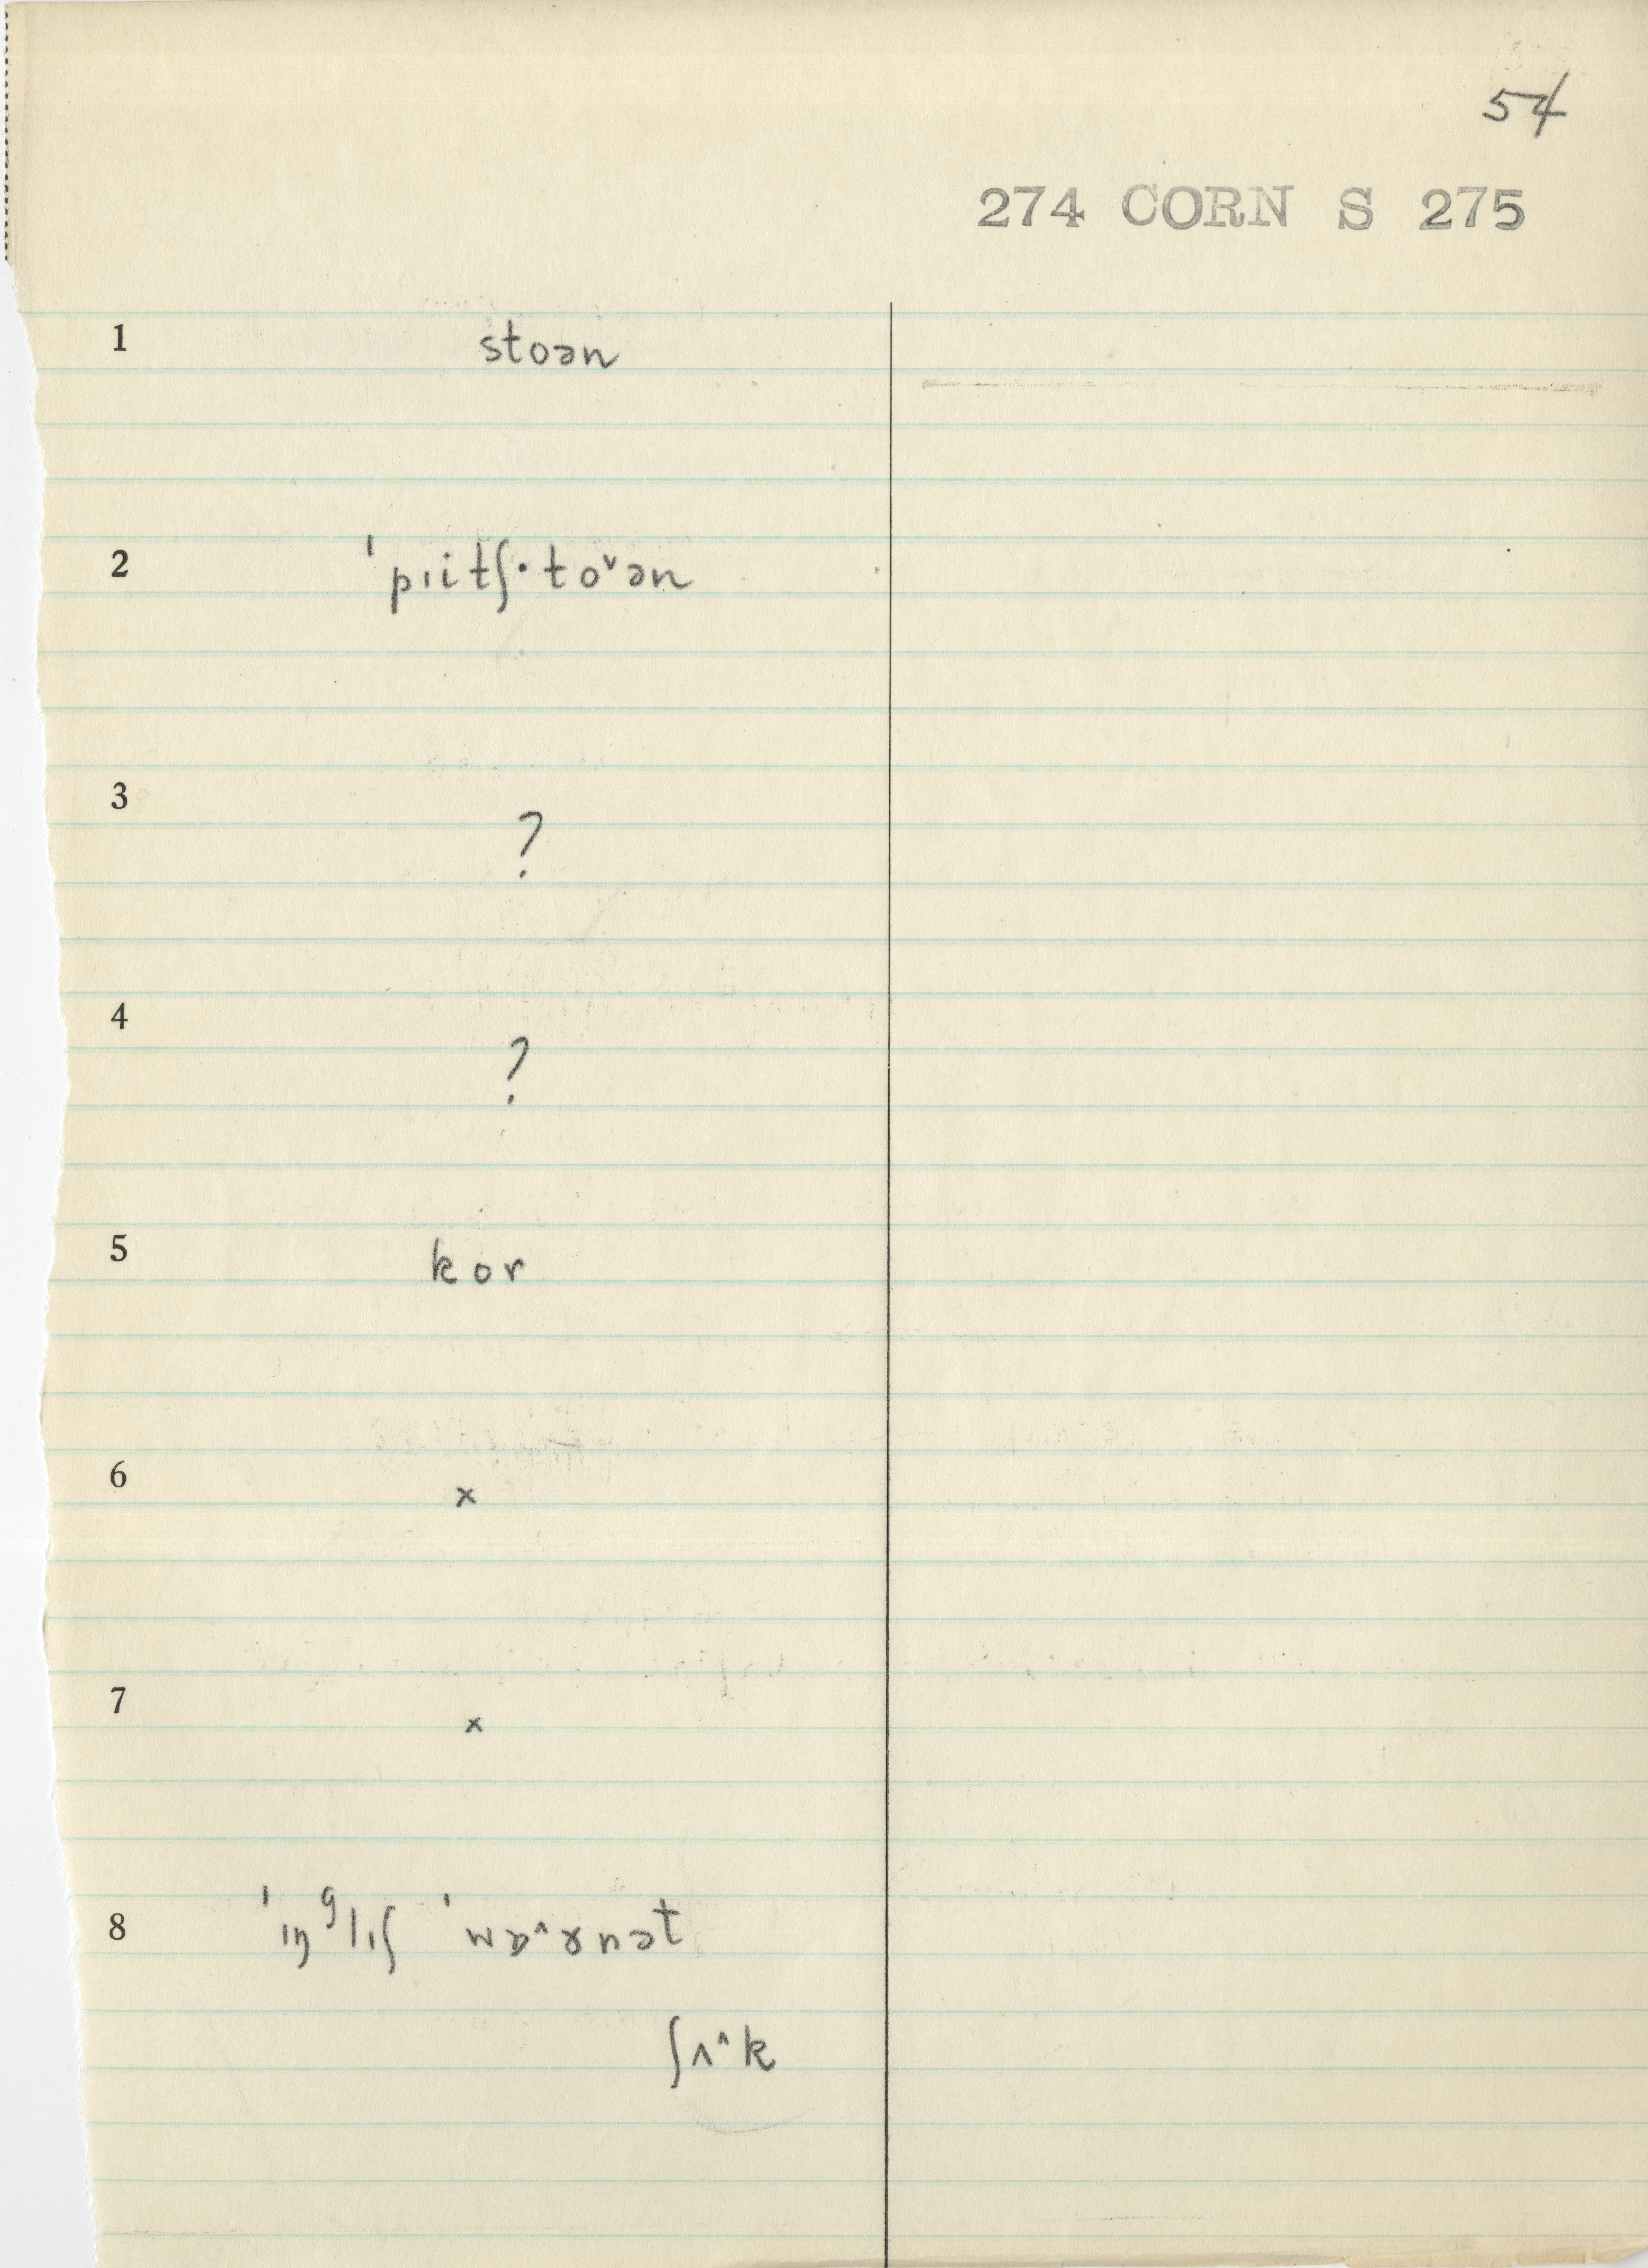 54
274 CORN S 275
1 stoən
2 ˈpɪitʃ·to˅ən
3 ?
4 ?
5 kor
6 x
7 x
8 ˈɪŋᶢlɪʃ ˈwɒ^ɤnət
ʃʌ^k